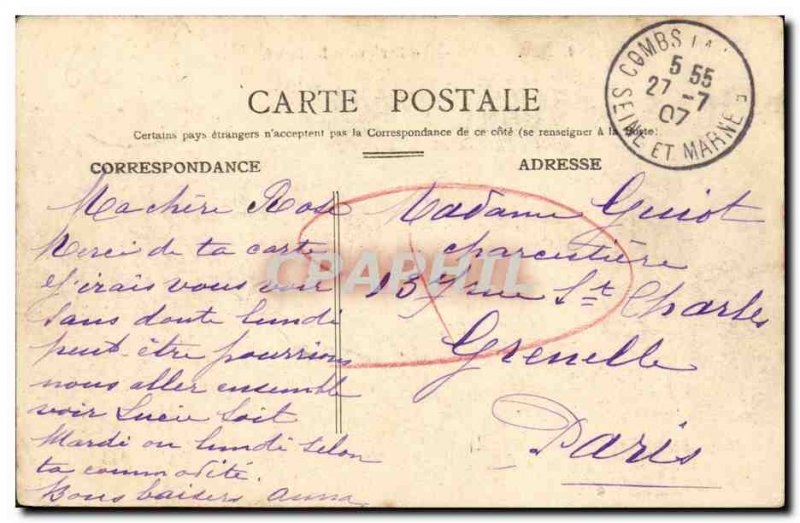 CARTE POSTALE
Certains pays étrangers n'acceptent pas la Correspondance de ce côté (se renseigner à la Poste)
CORRESPONDANCE
Ma chère Rose
Merci de ta carte
J'irais vous voir
Sans doute lundi
peut-être pourrions
nous aller ensemble
voir Lucie Soit
Mardi ou lundi selon
ta commodité.
Bons baisers Anna
ADRESSE
Madame Guiot
charcutière
157 rue St Charles
Grenelle
Paris
COMBS LA
5 55
27 - 7
07
SEINE ET MARNE
CPAPHIL